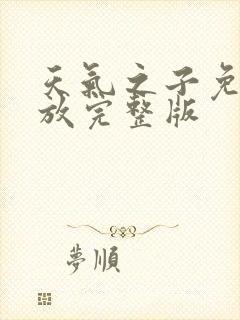 天氣之子免
放完整版
夢順